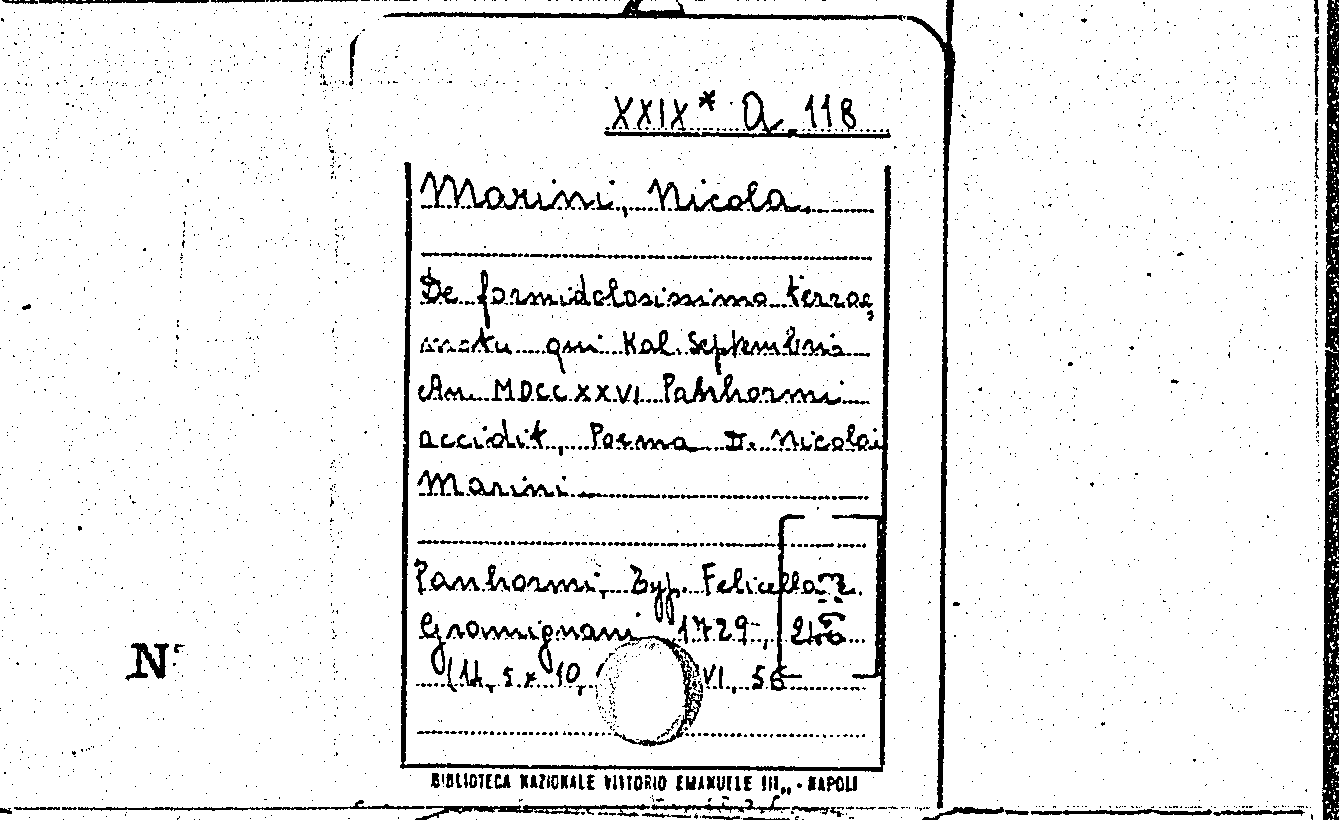 XXIX* A. 118
Marini, Nicola.
De formidolosissimo terrae,
motu qui Kal. Septembris
An. MDCCXXVI Panhormi
accidit, Poema D. Nicolai
Marini.
Panhormi, Typ. Felicella
Gramignani 1729,
(14,5 x 10, VI, 56
N
BIBLIOTECA NAZIONALE VITTORIO EMANUELE III„ - NAPOLI